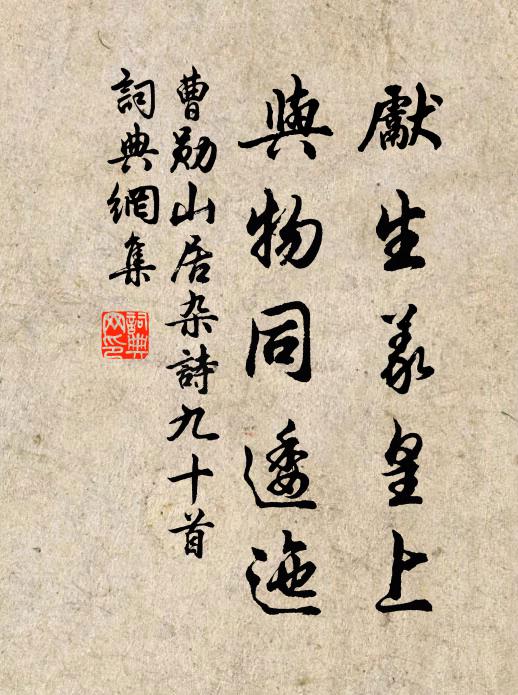 獻生羲皇上
與物同逶迤
曹勛山居杂詩九十首
詞典網集
詞典网印